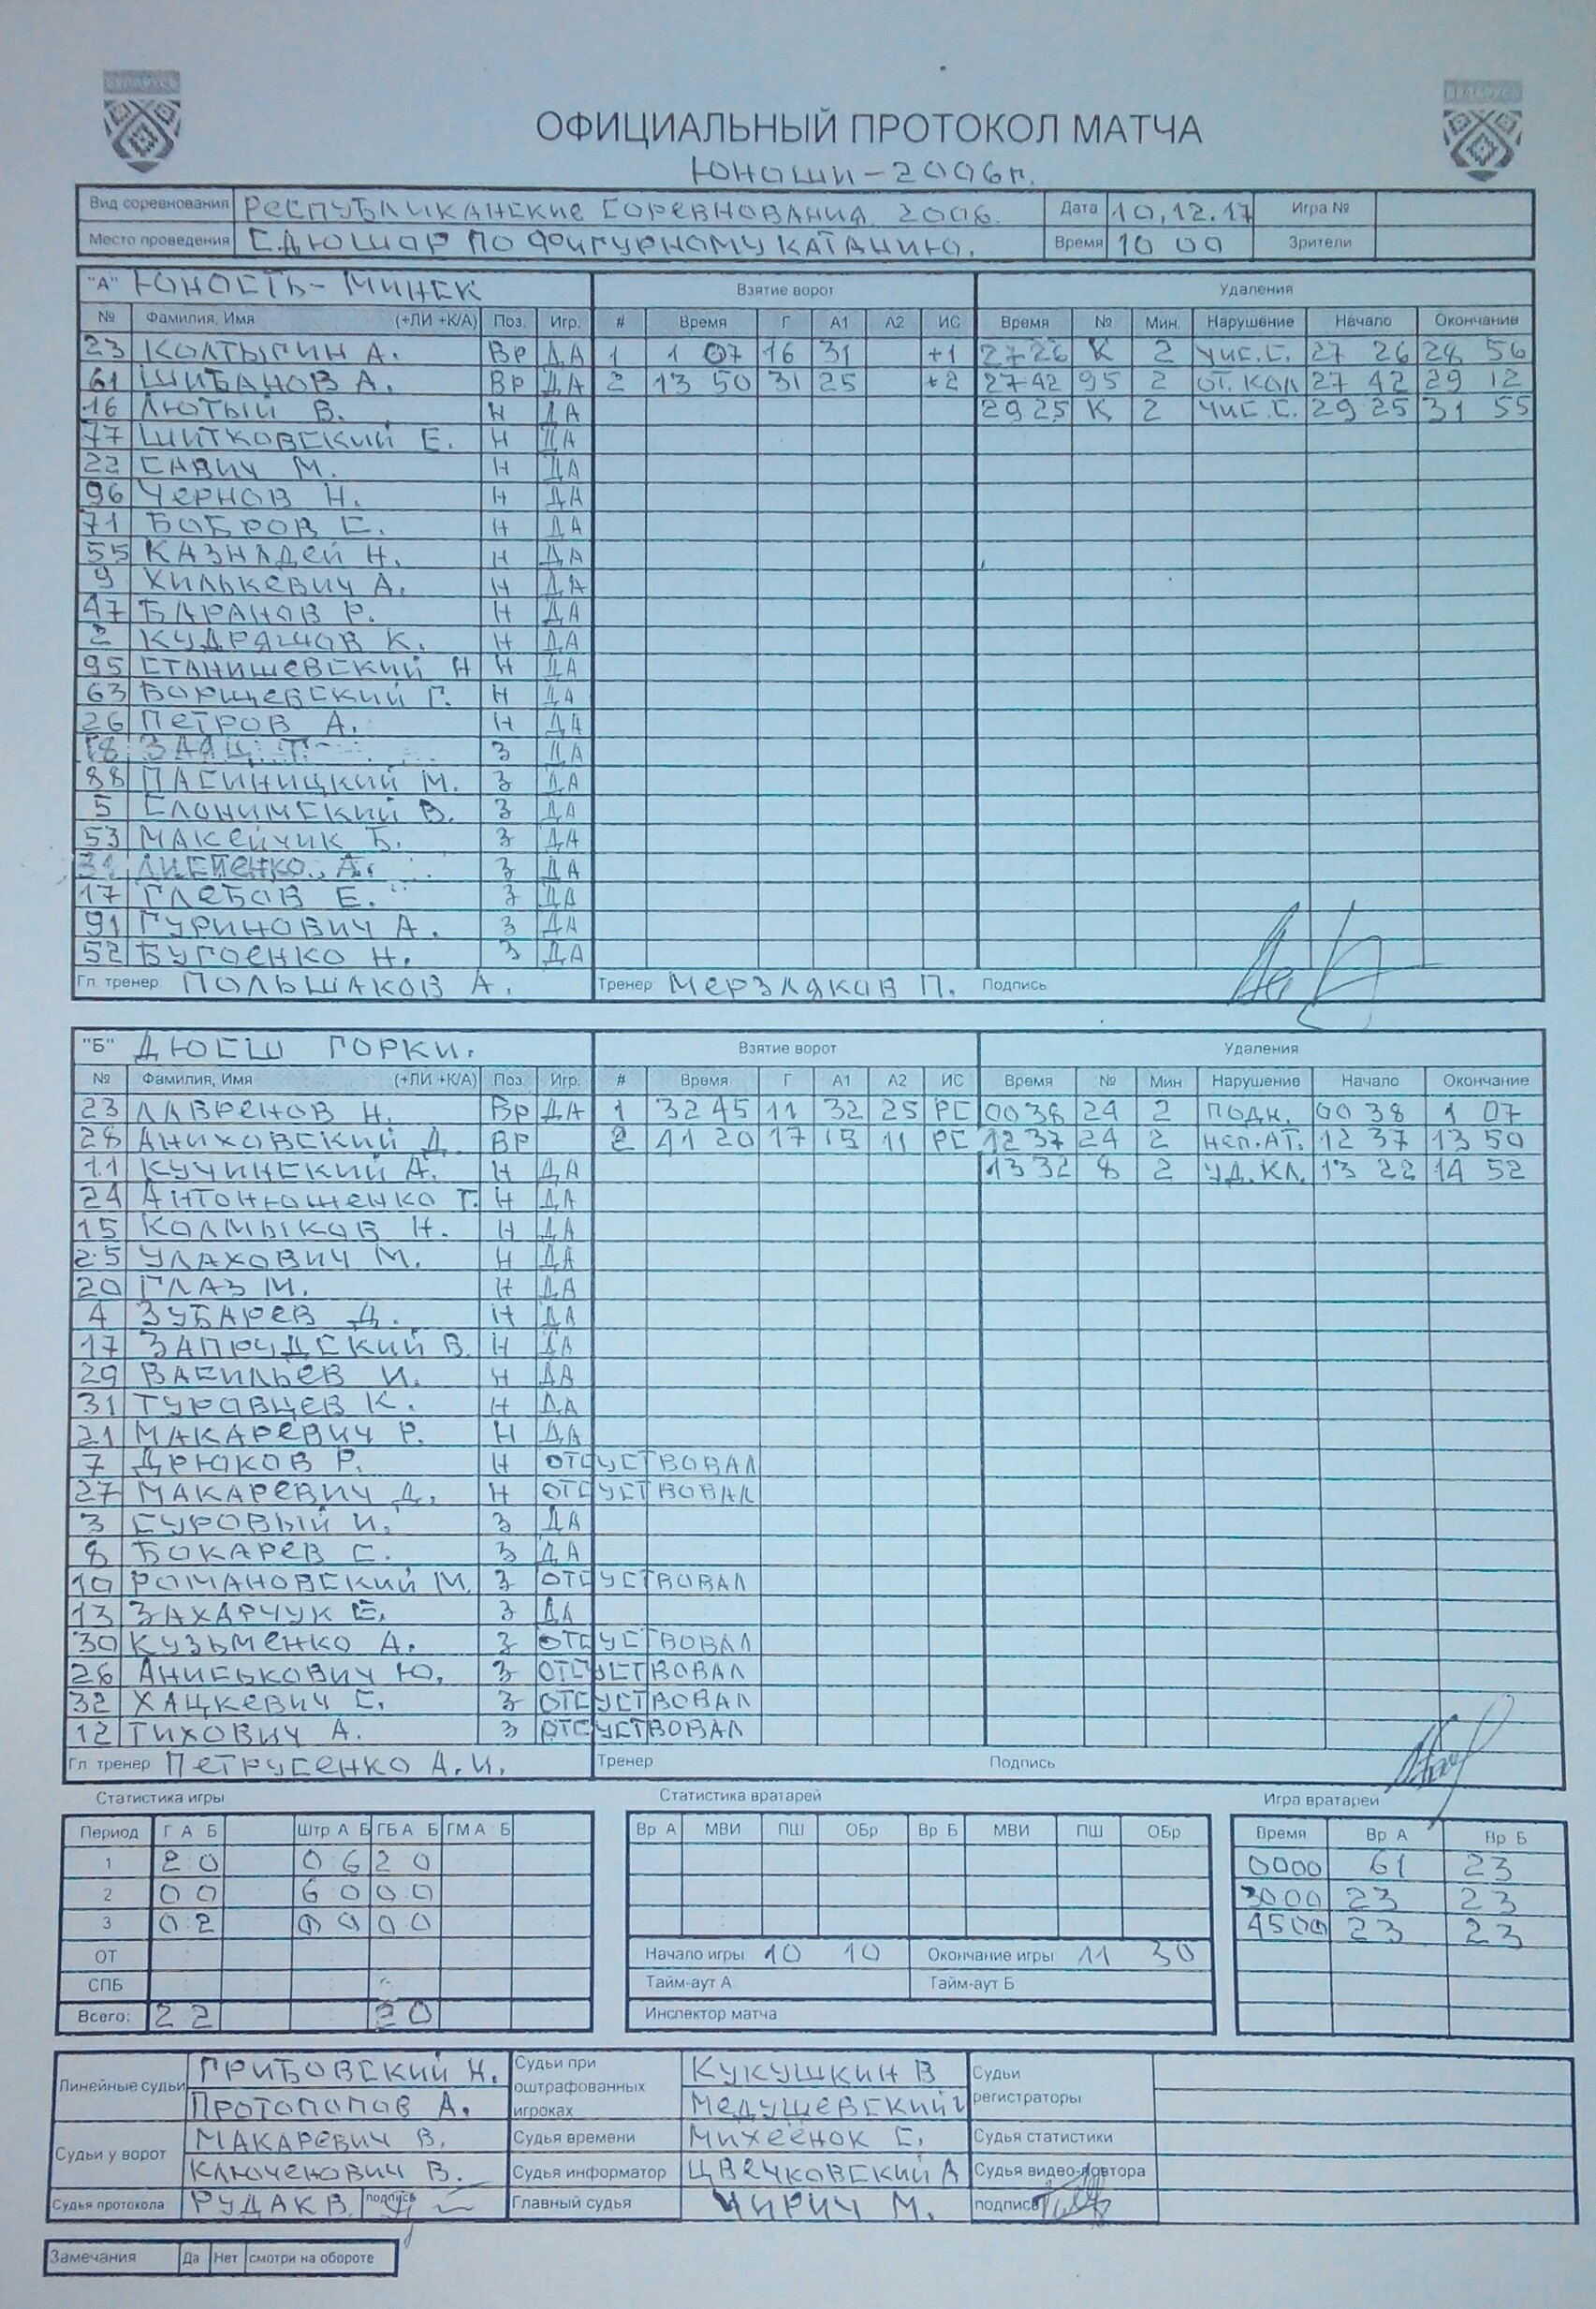 БЕЛАРУСЬ БЕЛАРУСЬ
ОФИЦИАЛЬНЫЙ ПРОТОКОЛ МАТЧА
Юноши-2006г.
Вид соревнования Республиканские соревнования 2006. Дата 10.12.17 Игра №
Место проведения СДЮШОР по фигурному катанию. Время 10 00 Зрители
"А" Юность-Минск Взятие ворот Удаления
№ Фамилия, Имя (+ЛИ +К/А) Поз. Игр. # Время Г А1 А2 ИС Время № Мин. Нарушение Начало Окончание
23 Колтыгин А. Вр ДА 1 1 07 16 31 +1 27 26 К 2 чис.с. 27 26 28 56
61 Шибанов А. Вр ДА 2 13 50 31 25 +2 27 42 95 2 от.кол 27 42 29 12
16 Лютый В. Н ДА 29 25 К 2 чис.с. 29 25 31 55
77 Шитковский Е. Н ДА
22 Савич М. Н ДА
96 Чернов Н. Н ДА
71 Бобров С. Н ДА
55 Казнадей Н. Н ДА
9 Хилькевич А. Н ДА
47 Баранов Р. Н ДА
2 Кудряшов К. Н ДА
95 Станишевский Н Н ДА
63 Борщевский Г. Н ДА
26 Петров А. Н ДА
18 З ДА
88 Пасиницкий М. З ДА
5 Слонимский В. З ДА
53 Макейчик Б. З ДА
31 А. З ДА
17 Глебов Е. З ДА
91 Гуринович А. З ДА
52 Бугоенко Н. З ДА
Гл. тренер Польшаков А. Тренер Мерзляков П. Подпись
"Б" ДЮСШ Горки. Взятие ворот Удаления
№ Фамилия, Имя (+ЛИ +К/А) Поз Игр. # Время Г А1 А2 ИС Время № Мин Нарушение Начало Окончание
23 Лавренов Н. Вр ДА 1 32 45 11 32 25 РС 00 38 24 2 подн. 00 38 1 07
28 Аниховский Д. Вр 2 41 20 17 15 11 РС 12 37 24 2 неп.ат. 12 37 13 50
11 Кучинский А. Н ДА 13 32 8 2 уд.кл. 13 22 14 52
24 Антонюшенко Т. Н ДА
15 Колмыков Н. Н ДА
25 Улахович М. Н ДА
20 Глаз М. Н ДА
4 Зубарев Д. Н ДА
17 Запрудский В. Н ДА
29 Васильев И. Н ДА
31 Туровцев К. Н ДА
21 Макаревич Р. Н ДА
7 Дрюков Р. Н отсуствовал
27 Макаревич Д. Н отсуствовал
3 Суровый И. З ДА
8 Бокарев С. З ДА
10 Романовский М. З отсуствовал
13 Захарчук Е. З ДА
30 Кузьменко А. З отсуствовал
26 Аниськович Ю. З отсуствовал
32 Хацкевич С. З отсуствовал
12 Тихович А. З отсуствовал
Гл тренер Петрусенко А.И. Тренер Подпись
Статистика игры Статистика вратарей Игра вратарей
Период Г А Б Штр А Б ГБ А Б ГМ А Б Вр А МВИ ПШ ОБр Вр Б МВИ ПШ ОБр Время Вр А Вр Б
1 2 0 0 6 2 0 0000 61 23
2 0 0 6 0 0 0 3000 23 23
3 0 2 0 0 0 0 4500 23 23
ОТ Начало игры 10 10 Окончание игры 11 30
СПБ Тайм-аут А Тайм-аут Б
Всего: 2 2 2 0 Инспектор матча
Линейные судьи Грибовский Н. Протопопов А. Судьи при оштрафованных игроках Кукушкин В Медушевский Судьи регистраторы
Судьи у ворот Макаревич В. Судья времени Михеёнок С. Судья статистики
Ключенович В. Судья информатор Цвечковский А Судья видео-повтора
Судья протокола Рудак В. подпись Главный судья Чирич М. подпись
Замечания Да Нет смотри на обороте